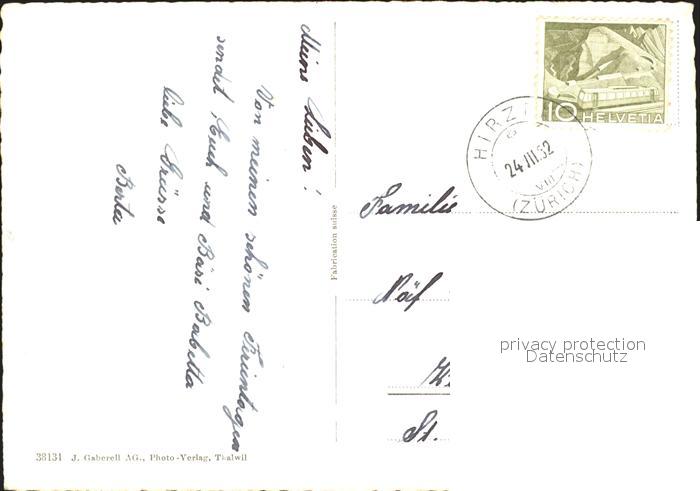 Meine Lieben!
Von meinen schönen Ferientagen
sendet Euch und Bäsi Babetta
liebe Grüsse
Berta
38131 J. Gaberell AG., Photo-Verlag, Thalwil
Fabrication suisse
10 HELVETIA
24 III 52
VIII
(ZÜRICH)
Familie
Näf
St.
privacy protection
Datenschutz